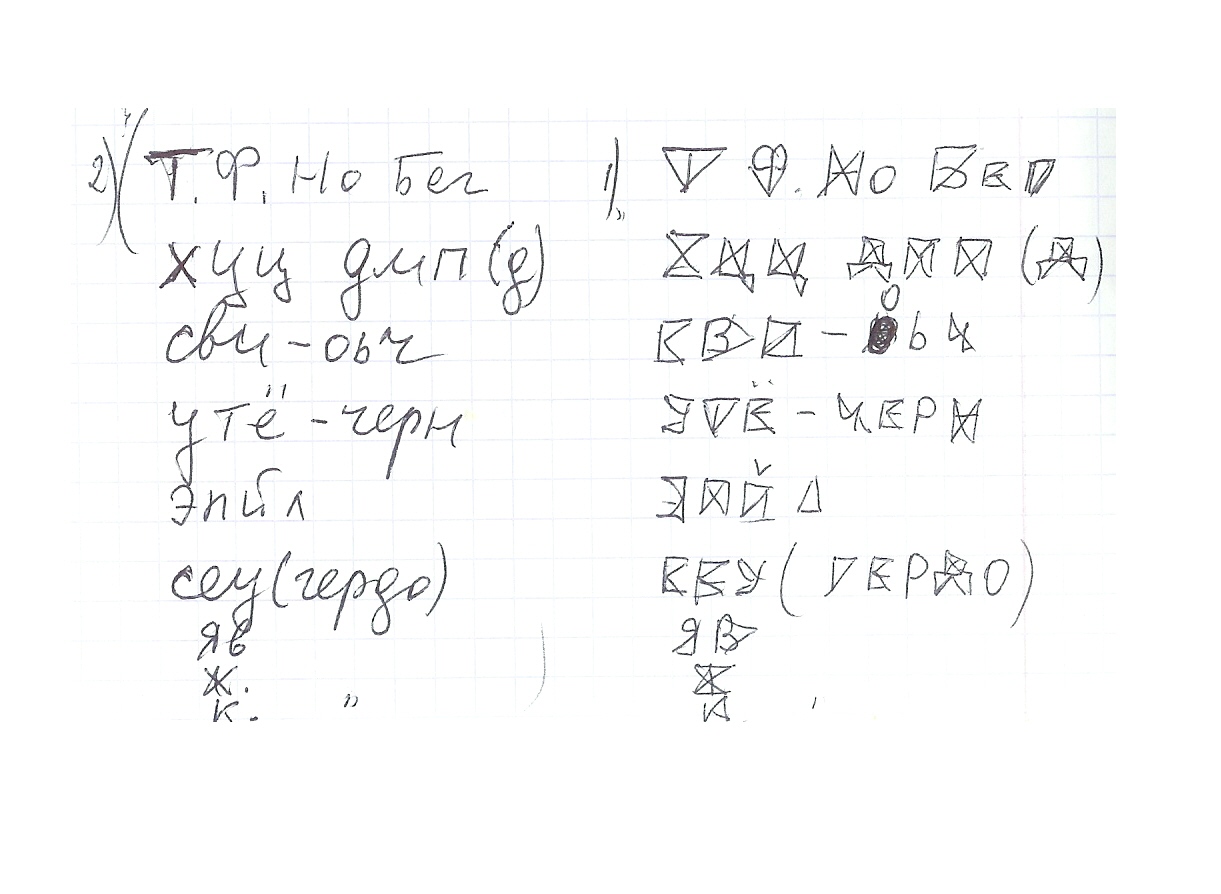 2) ( Т. Ф. Но Бег
хуц дмп (д)
сви - оьч
утё - черн
эпйл
сеу (гердо)
яв
ж.
к. "
1) " Т Ф. Но Бег
ХЦЦ ДМП (Д)
СВИ - ОЬЧ
УТЁ - ЧЕРН
ЭПЙЛ
СЕУ (ГЕРДО)
ЯВ
Ж
К